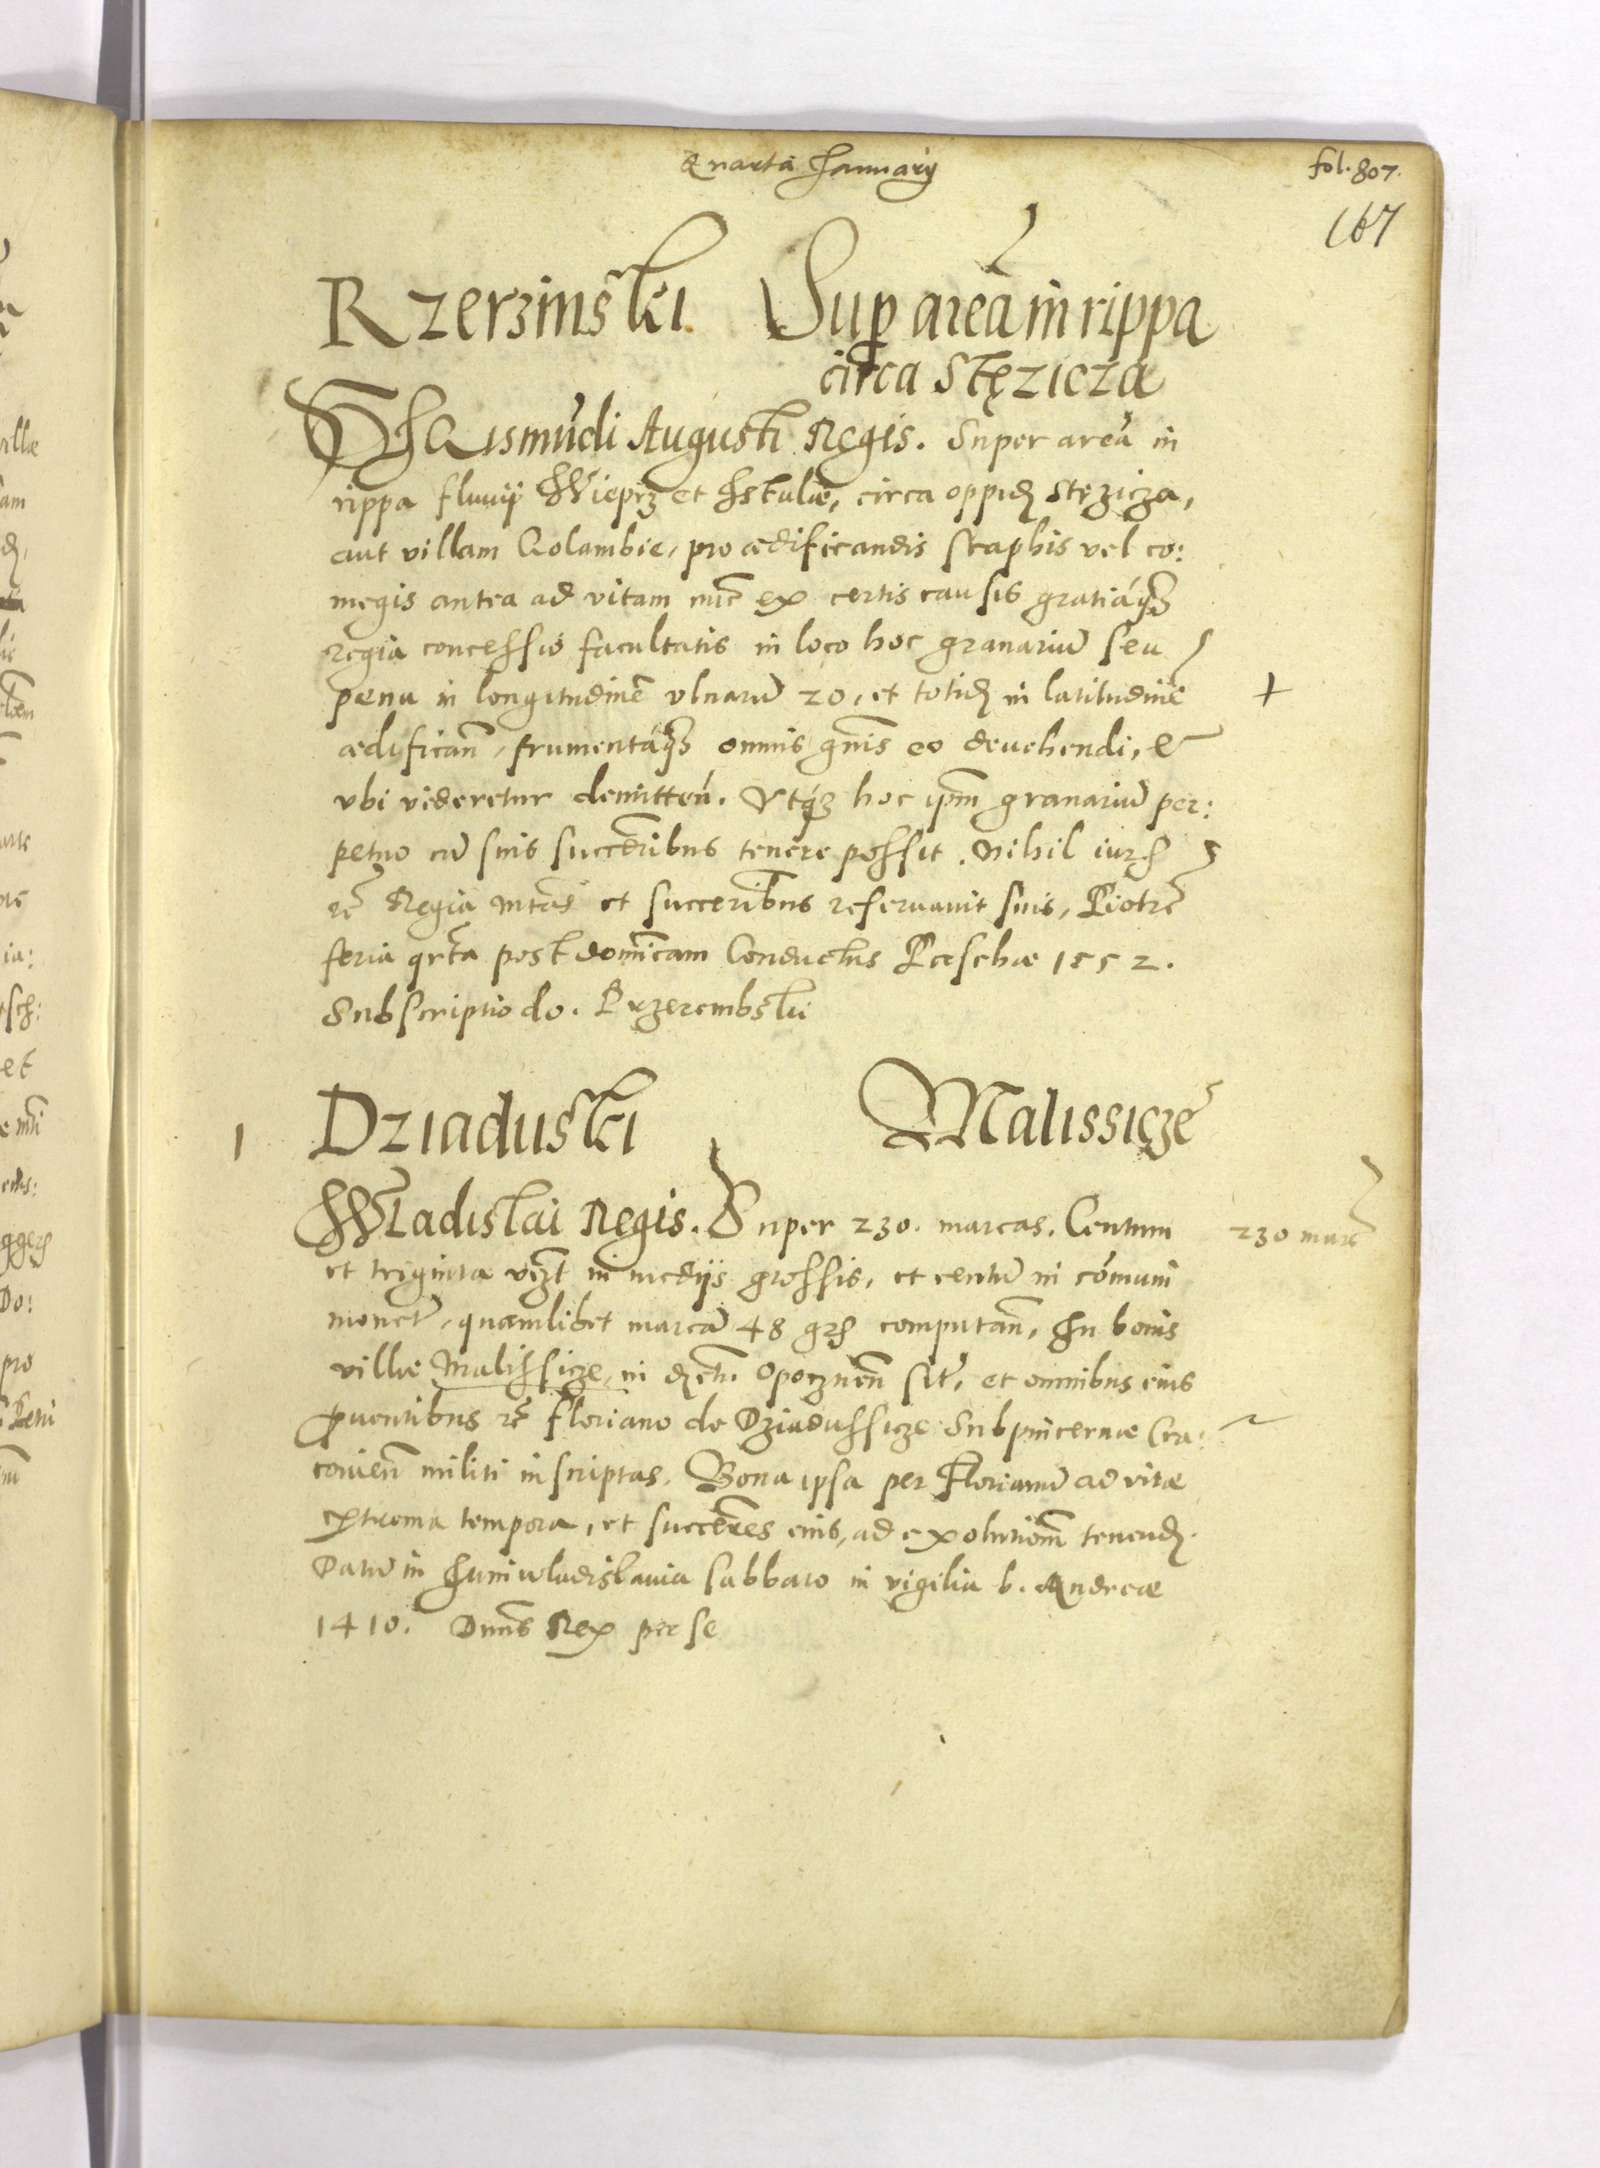 Quarta January
fol. 807.
167
Rzerzinski Sup areā in rippa
circa Stęzicza
SIGismūdi Augusti Regis. Super areā in
rippa fluuij Wieprz et Istulæ, circa oppid Stęzicza,
aut villam Golambie, pro ædificandis scaphis vel co:
megis antea ad vitam nūc ex certis causis gratiáqȝ
regia concessio facultatis in loco hoc granariū seu
penu in longitudinē vlnarū 20, et totid in latitudinē
ædificañ, frumentáqȝ omnis gñis eo deuehendi, &
vbi videretur demitteñ. Vtqȝ hoc ipm granariū per:
petuo cū suis succeribus tenere possit. Nihil iuris
rē Regia Mtas et succeribus reseruauit suis, Piotrc̄
feria qrta post dominicam Conductus Paschæ 1552.
Subscriptio do. Przerembski
1 Dziaduski Malissicze
Wladislai Regis. Super 230. marcas. Centum
230 marc
et triginta vizt in medijs grossis, et centū in cómuni
monet, quamlibet marcā 48 grs computañ, In bonis
villæ Malissicze, in dcto. Opocznen sit, et omnibus eius
prouentibus rē Floriano de Dziadussicze Subpincernæ Cra:
couień militi inscriptas. Bona ipsa per Florianū ad vitæ
extrema tempora, et succeres eius, ad exolutiom tenend.
Datū in Iuniuladislauia sabbato in vigilia b. Andreæ
1410. Dnus Rex per se